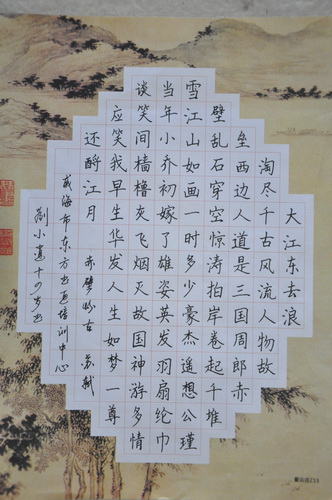 大江东去浪
淘尽千古风流人物故
垒西边人道是三国周郎赤
壁乱石穿空惊涛拍岸卷起千堆
雪江山如画一时多少豪杰遥想公瑾
当年小乔初嫁了雄姿英发羽扇纶巾
谈笑间樯橹灰飞烟灭故国神游多情
应笑我早生华发人生如梦一尊
还酹江月 赤壁怀古 苏轼
威海市东方书画培训中心